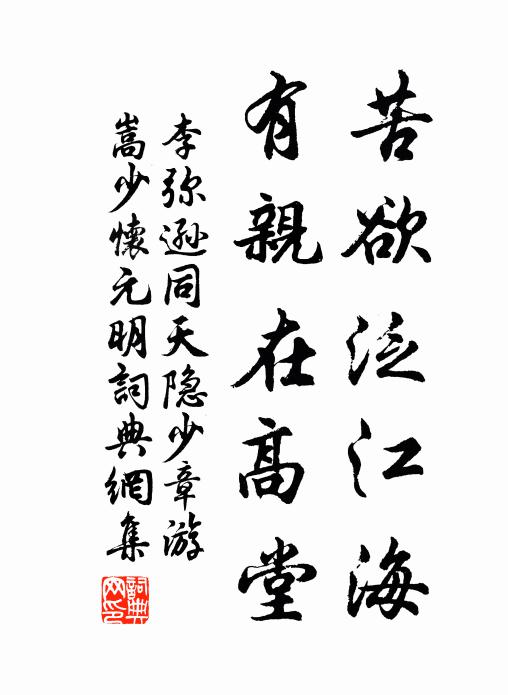 苦欲泛江海
有親在高堂
李弥遜同天隐少章游
嵩少懷元明詞典網集
詞典网印